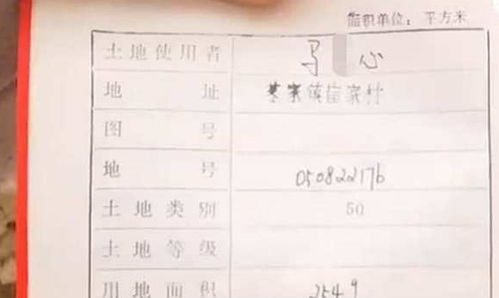 面积单位：平方米
土地使用者 马 心
地址 蔡家镇苗家村
图号
地号 050822176
土地类别 50
土地等级
用地面积 254.9